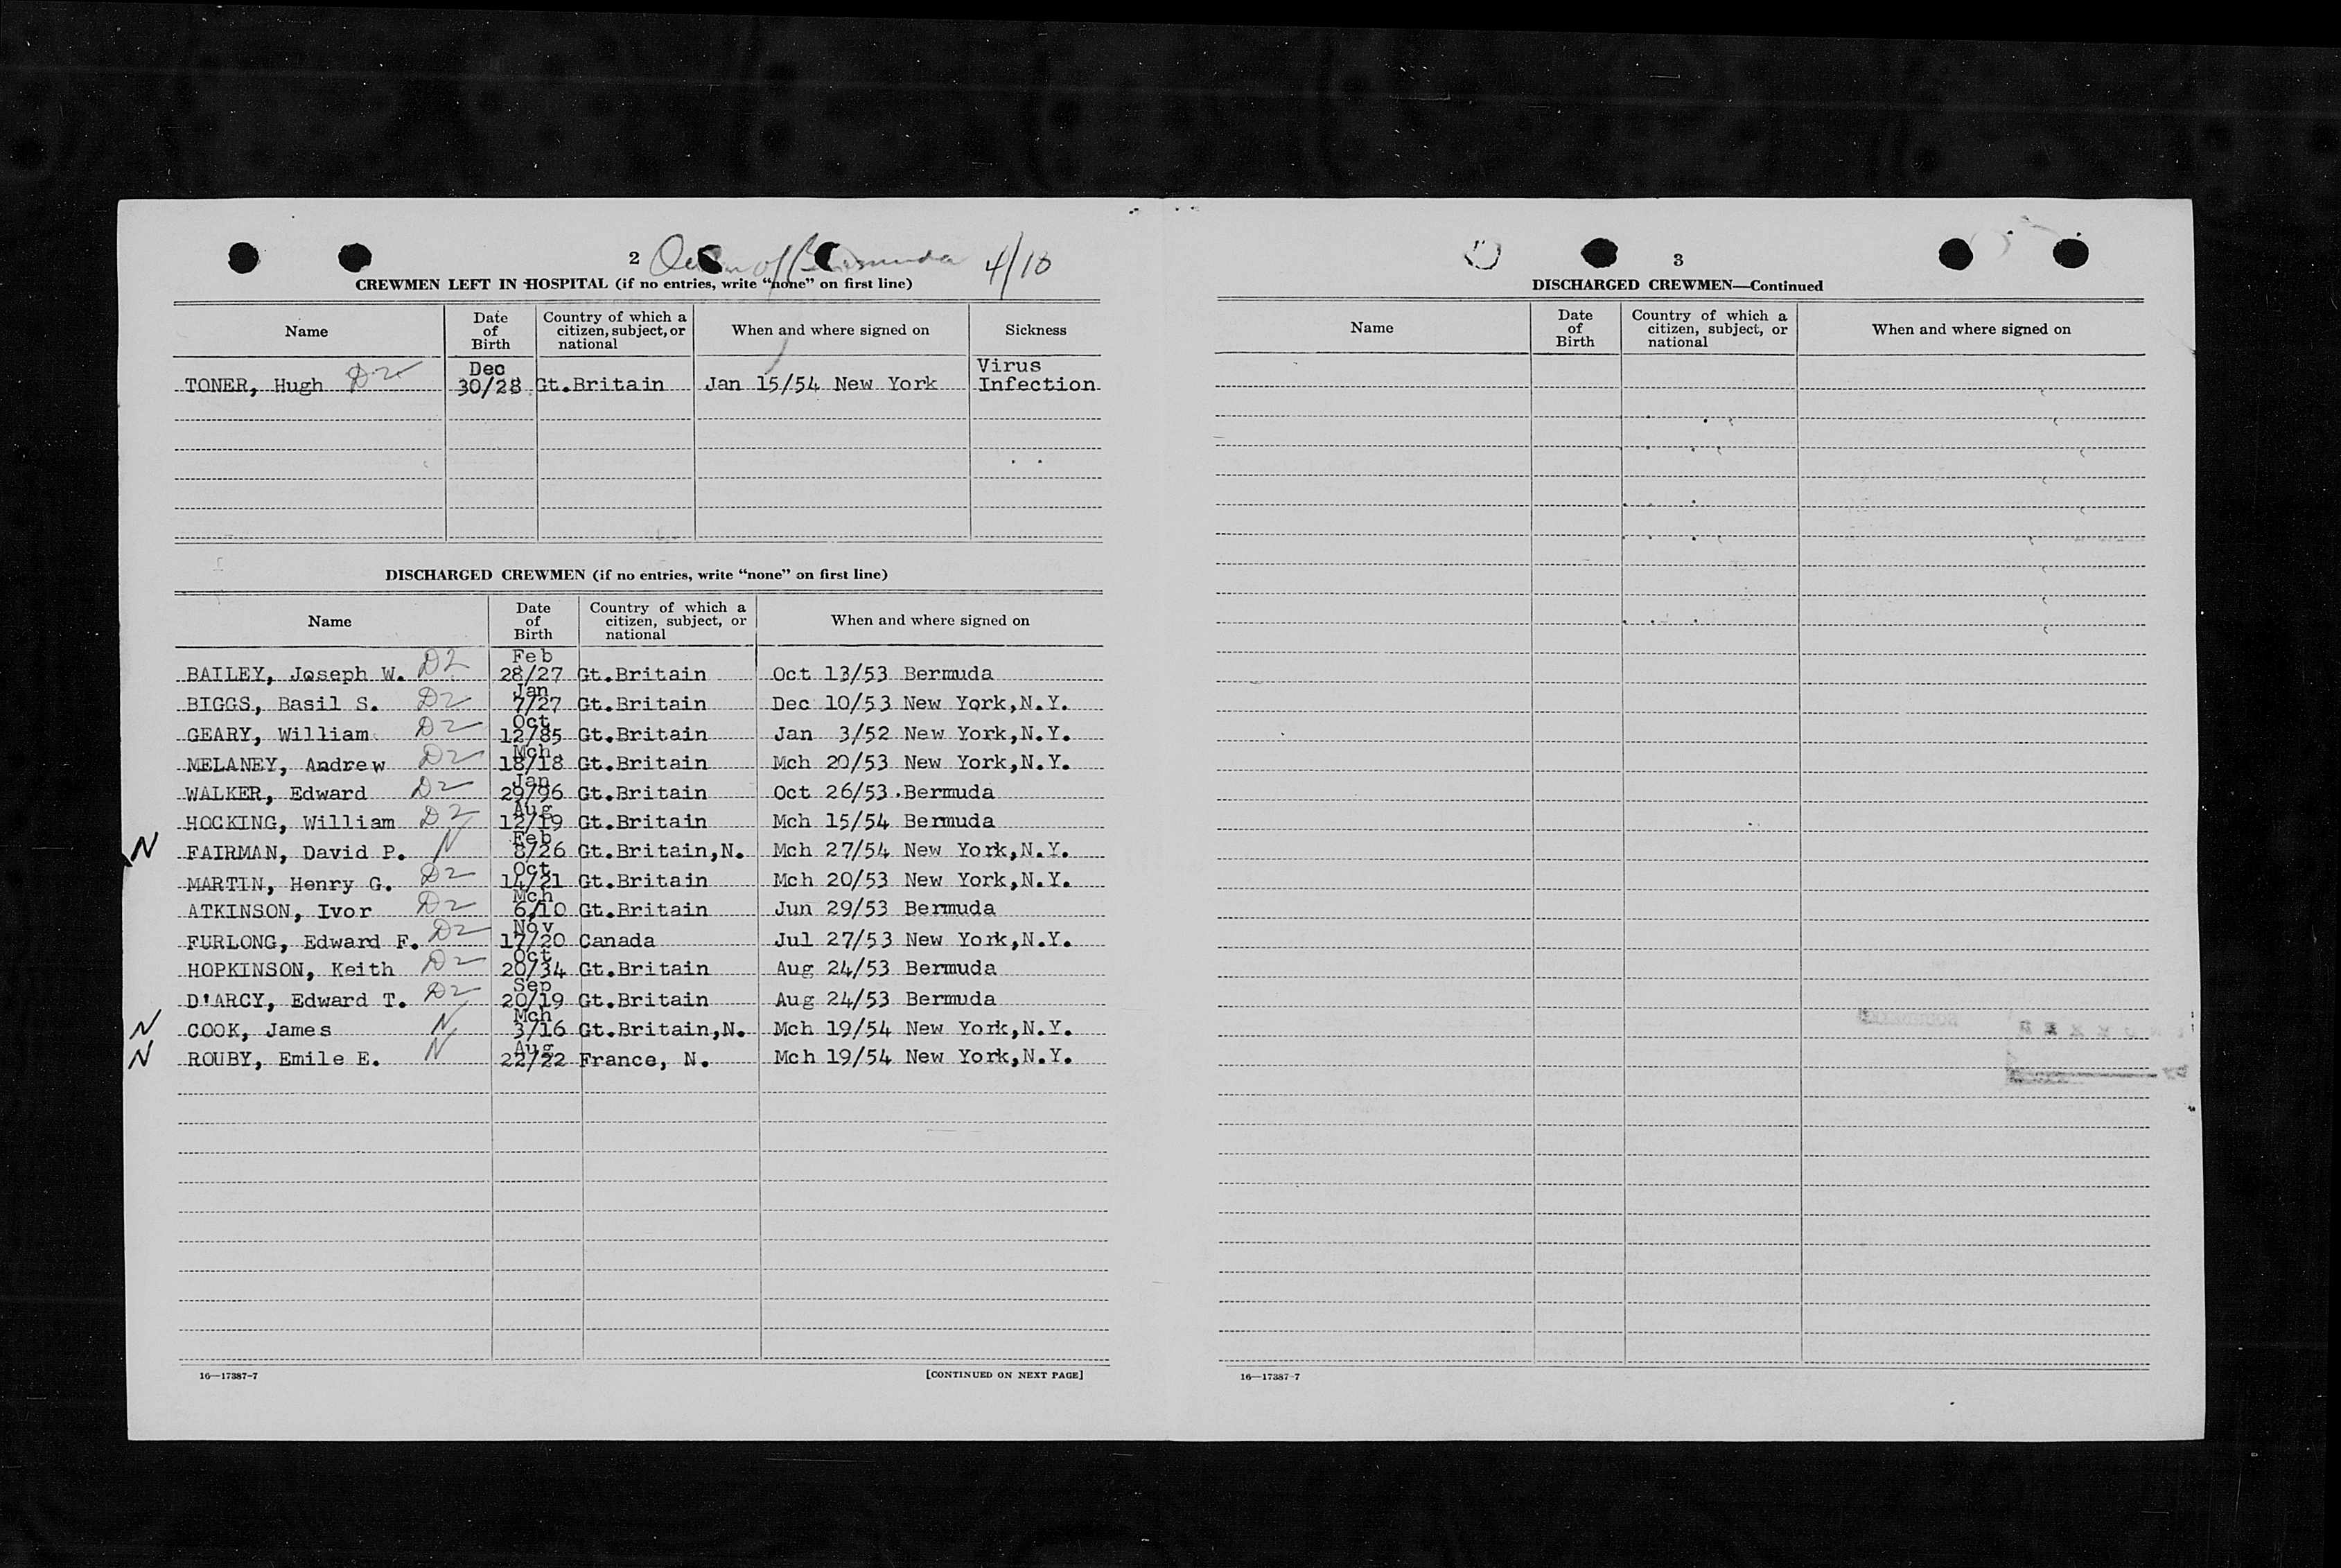 2 Queen of Bermuda 4/10
CREWMEN LEFT IN HOSPITAL (if no entries, write “none” on first line)
Name
Date of Birth
Country of which a citizen, subject, or national
When and where signed on
Sickness
TONER, Hugh D2 Dec 30/28 Gt.Britain Jan 15/54 New York Virus Infection
DISCHARGED CREWMEN (if no entries, write “none” on first line)
Name
Date of Birth
Country of which a citizen, subject, or national
When and where signed on
BAILEY, Joseph W. D2 Feb 28/27 Gt.Britain Oct 13/53 Bermuda
BIGGS, Basil S. D2 Jan 7/27 Gt.Britain Dec 10/53 New York,N.Y.
GEARY, William D2 Oct 12/85 Gt.Britain Jan 3/52 New York,N.Y.
MELANEY, Andrew D2 Mch 18/18 Gt.Britain Mch 20/53 New York,N.Y.
WALKER, Edward D2 Jan 29/96 Gt.Britain Oct 26/53.Bermuda
HOCKING, William D2 Aug 12/19 Gt.Britain Mch 15/54 Bermuda
N FAIRMAN, David P. N Feb 8/26 Gt.Britain,N. Mch 27/54 New York,N.Y.
MARTIN, Henry G. D2 Oct 14/21 Gt.Britain Mch 20/53 New York,N.Y.
ATKINSON, Ivor D2 Mch 6/10 Gt.Britain Jun 29/53 Bermuda
FURLONG, Edward F. D2 Nov 17/20 Canada Jul 27/53 New York,N.Y.
HOPKINSON, Keith D2 Oct 20/34 Gt.Britain Aug 24/53 Bermuda
D'ARCY, Edward T. D2 Sep 20/19 Gt.Britain Aug 24/53 Bermuda
N COOK, James N Mch 3/16 Gt.Britain,N. Mch 19/54 New York,N.Y.
N ROUBY, Emile E. N Aug 22/22 France, N. Mch 19/54 New York,N.Y.
16—17387-7 [CONTINUED ON NEXT PAGE]
3
DISCHARGED CREWMEN—Continued
Name
Date of Birth
Country of which a citizen, subject, or national
When and where signed on
16—17387-7